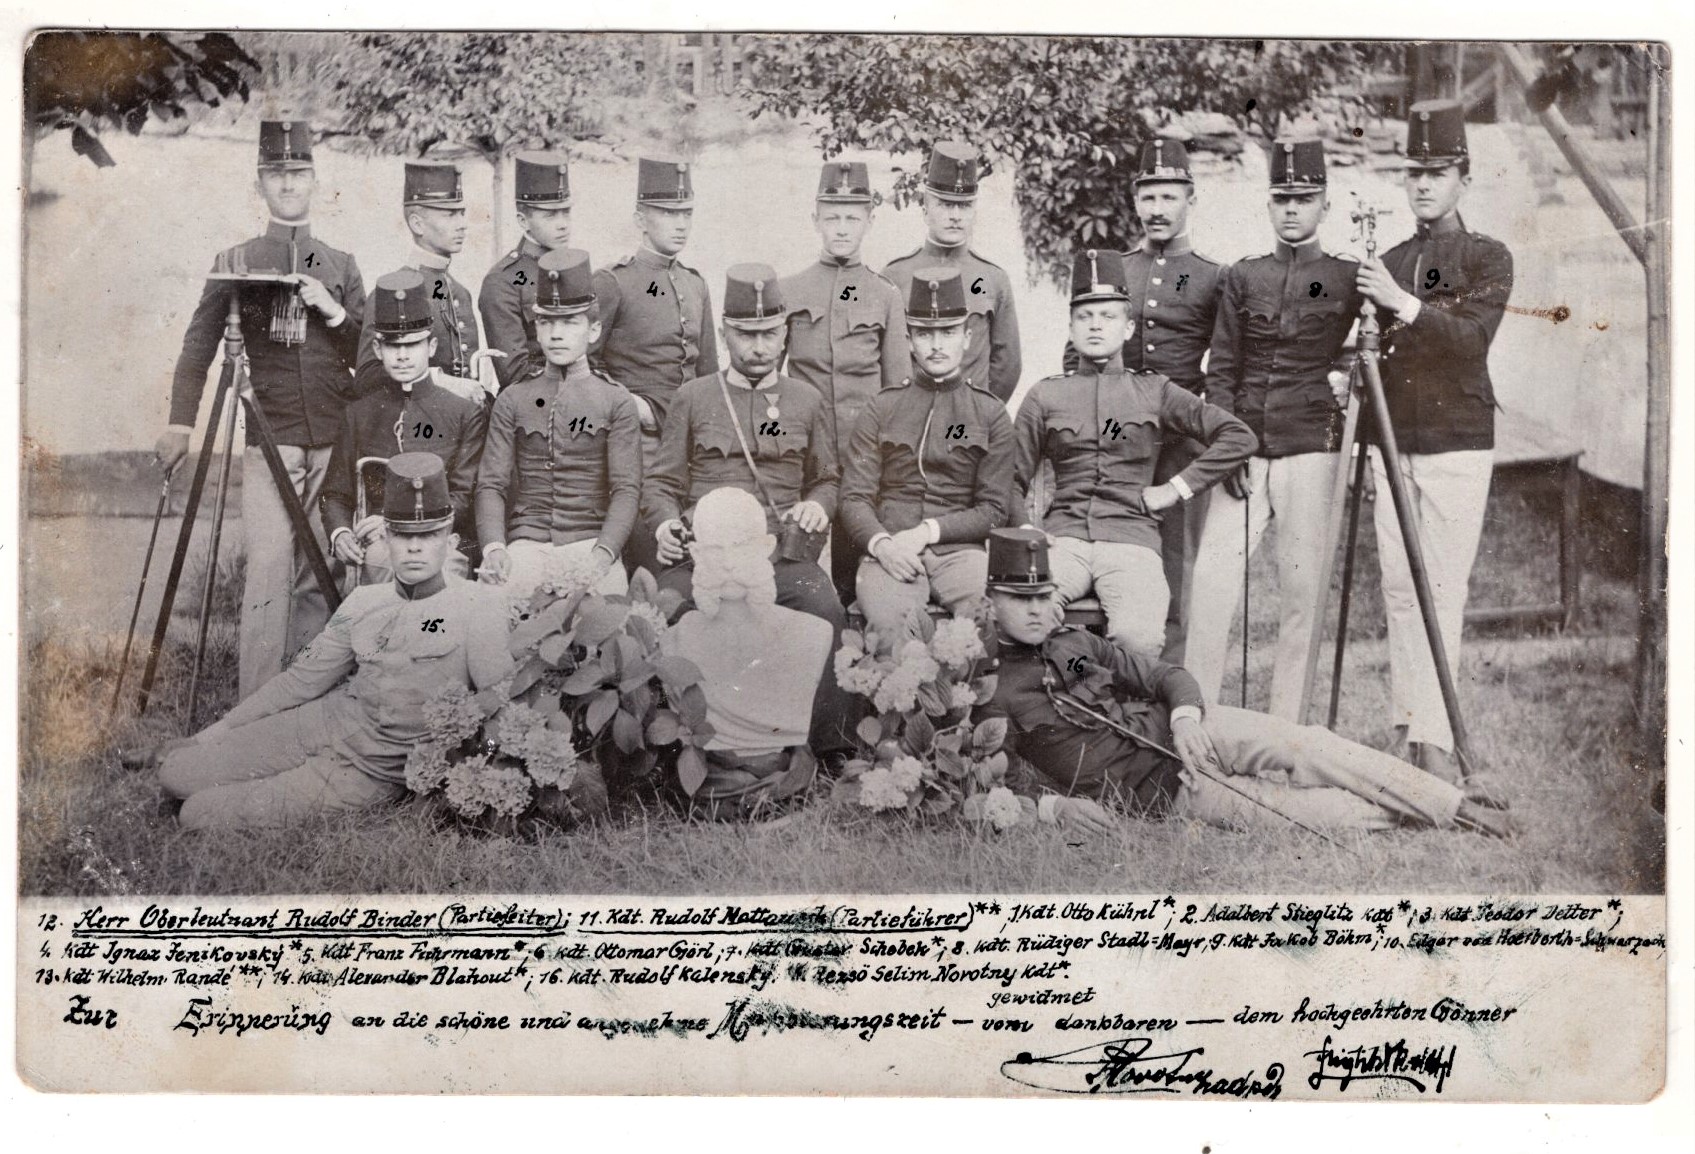 1.
2.
3.
4.
5.
6.
7
8.
9.
10.
11.
12.
13.
14.
15.
16
12. Herr Oberleutnant Rudolf Binder (Partieleiter); 11. Kdt. Rudolf (Partieführer)**, 1, Kdt. Otto Kühnl*; 2. Adalbert Stieglitz kdt*; 3. Kdt. Teodor Detter*;
4. Kdt Ignaz Fenikovský* 5. Kdt Franz Fuhrmann*, 6 kdt. Ottomar Görl; 7. Kdt Schebek*; 8. kdt. Rüdiger Stadl=Mayr, 9. Kdt Jakob Böhm*; 10. Edgar von
13. Kdt Wilhelm Randé**; 14. Kdt Alexander Blahout*; 16. Kdt. Rudolf Kalenský. Dezsö Selim Novotny Kdt*.
gewidmet
Zur Erinnerung an die schöne und angenehme Mappierungszeit — vom dankbaren — dem hochgeehrten Gönner
Novotny